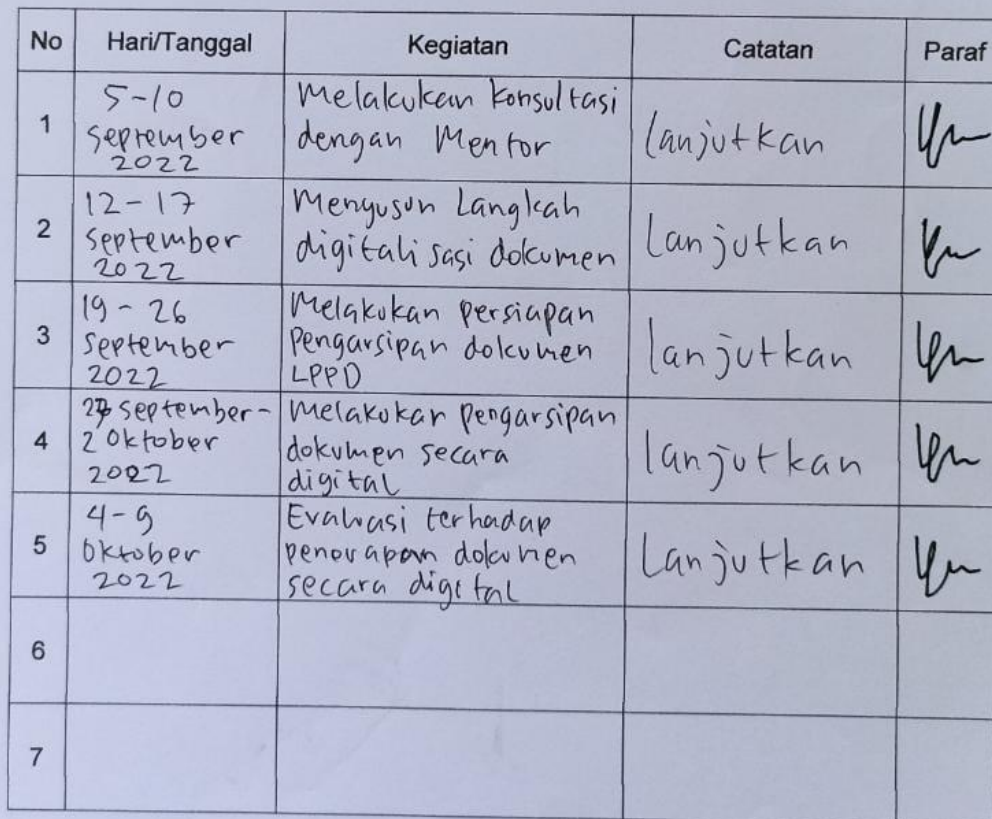 No Hari/Tanggal Kegiatan Catatan Paraf
1
5-10
September
2022
Melakukan Konsultasi
dengan Mentor
lanjutkan
2
12-17
September
2022
Menyusun Langkah
digitalisasi dokumen
Lanjutkan
3
19-26
September
2022
Melakukan persiapan
Pengarsipan dokumen
LPPD
lanjutkan
4
27 September-
2 Oktober
2022
Melakukan pengarsipan
dokumen secara
digital
lanjutkan
5
4-9
Oktober
2022
Evaluasi terhadap
penerapan dokumen
secara digital
Lanjutkan
6
7